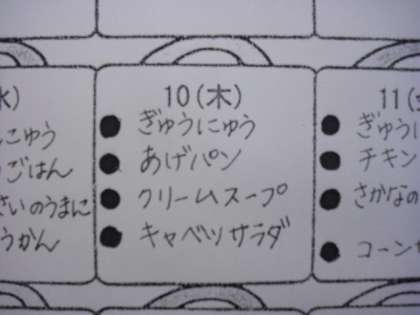 水)
こゅう
ごはん
さいのうまに
うかん
10(木)
ぎゅうにゅう
あげパン
クリームスープ
キャベツサラダ
11(
ぎゅうに
チキン
さかなの
コーン